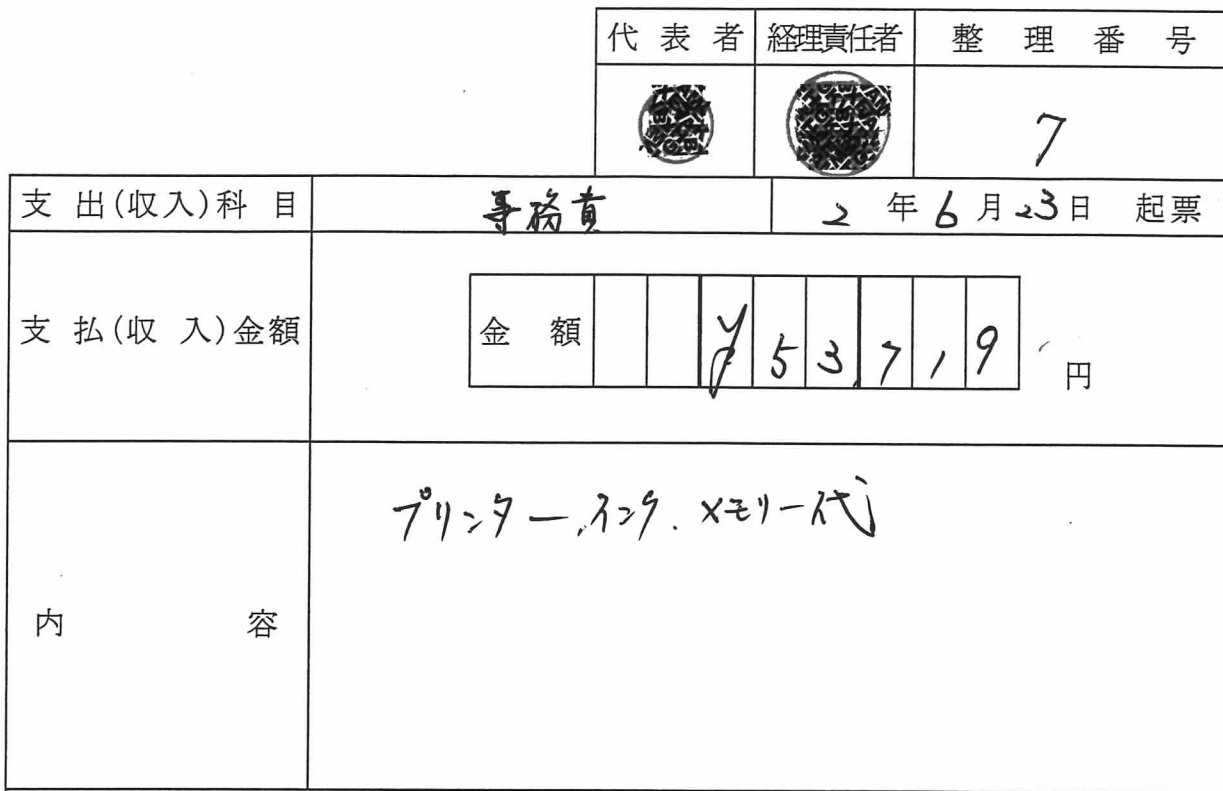 代表者 経理責任者 整理番号
7
支出(収入)科目 事務費 2年6月23日 起票
支払(収入)金額 金額 ¥53,719 円
プリンター、インク、メモリー代
内容